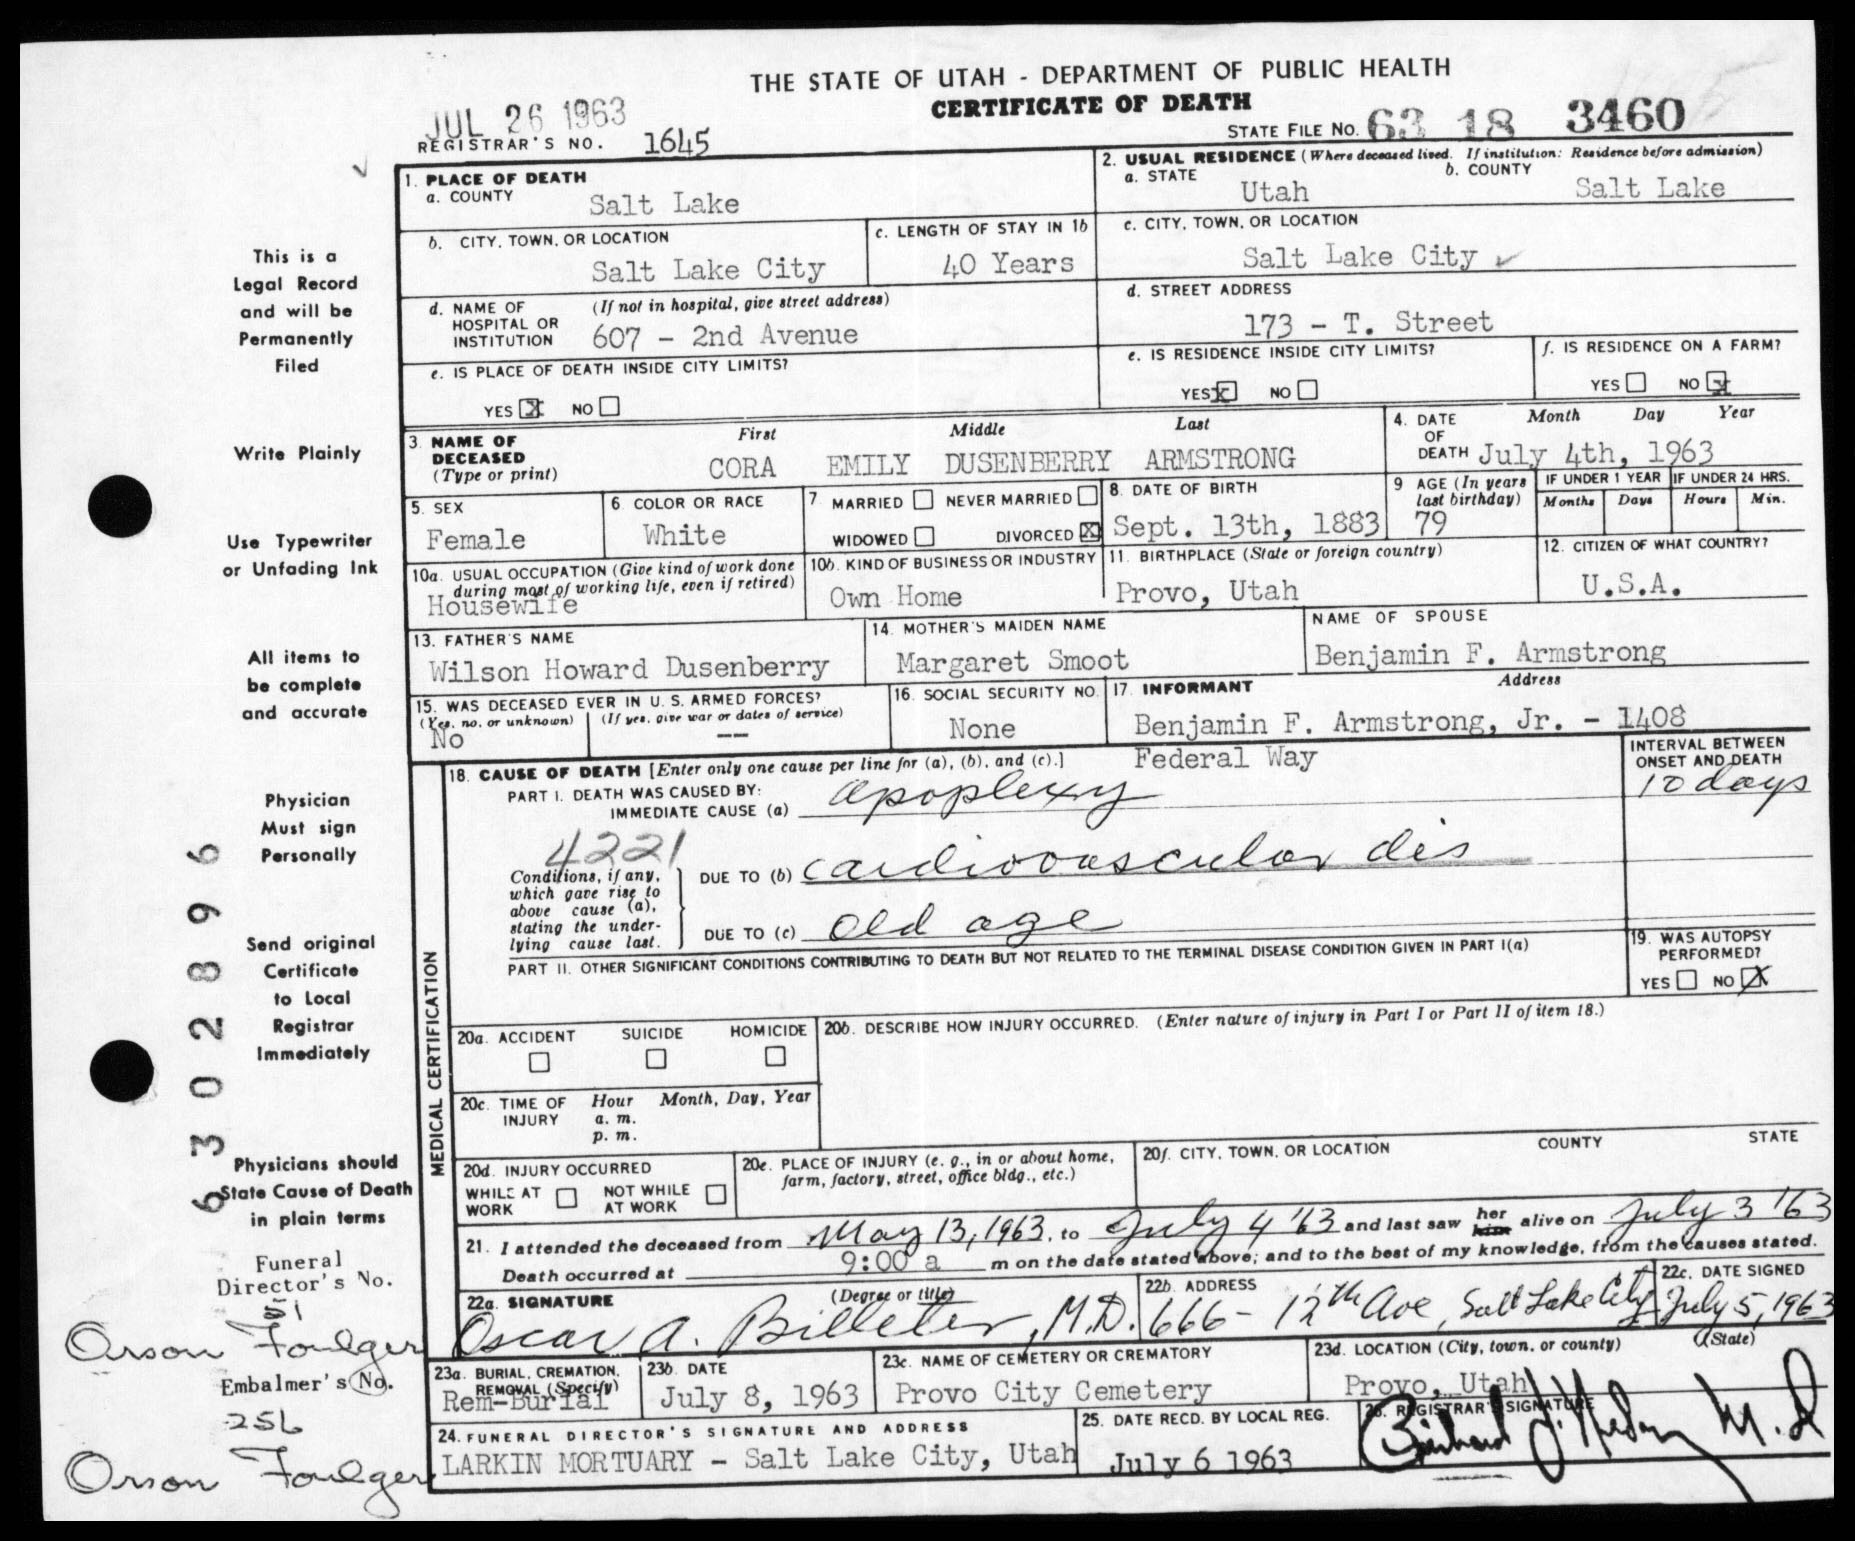 THE STATE OF UTAH - DEPARTMENT OF PUBLIC HEALTH
CERTIFICATE OF DEATH
JUL 26 1963
REGISTRAR'S NO. 1645
STATE FILE NO. 63 18 3460
1. PLACE OF DEATH
a. COUNTY Salt Lake
2. USUAL RESIDENCE (Where deceased lived. If institution: Residence before admission)
a. STATE Utah b. COUNTY Salt Lake
b. CITY, TOWN, OR LOCATION Salt Lake City
c. LENGTH OF STAY IN 1b 40 Years
c. CITY, TOWN, OR LOCATION Salt Lake City
d. NAME OF HOSPITAL OR INSTITUTION (If not in hospital, give street address) 607 - 2nd Avenue
d. STREET ADDRESS 173 - T. Street
e. IS PLACE OF DEATH INSIDE CITY LIMITS? YES X NO
e. IS RESIDENCE INSIDE CITY LIMITS? YES X NO
f. IS RESIDENCE ON A FARM? YES NO X
3. NAME OF DECEASED (Type or print) First Middle Last
CORA EMILY DUSENBERRY ARMSTRONG
4. DATE OF DEATH Month Day Year July 4th, 1963
5. SEX Female
6 COLOR OR RACE White
7. MARRIED NEVER MARRIED WIDOWED DIVORCED X
8. DATE OF BIRTH Sept. 13th, 1883
9 AGE (In years last birthday) 79
IF UNDER 1 YEAR Months Days
IF UNDER 24 HRS. Hours Min.
10a. USUAL OCCUPATION (Give kind of work done during most of working life, even if retired) Housewife
10b. KIND OF BUSINESS OR INDUSTRY Own Home
11. BIRTHPLACE (State or foreign country) Provo, Utah
12. CITIZEN OF WHAT COUNTRY? U.S.A.
13. FATHER'S NAME Wilson Howard Dusenberry
14. MOTHER'S MAIDEN NAME Margaret Smoot
NAME OF SPOUSE Benjamin F. Armstrong
15. WAS DECEASED EVER IN U. S. ARMED FORCES?
(Yes, no, or unknown) No
(If yes, give war or dates of service) --
16. SOCIAL SECURITY NO. None
17. INFORMANT Address
Benjamin F. Armstrong, Jr. - 1408
Federal Way
MEDICAL CERTIFICATION
18. CAUSE OF DEATH [Enter only one cause per line for (a), (b), and (c).]
PART I. DEATH WAS CAUSED BY:
IMMEDIATE CAUSE (a) apoplexy
INTERVAL BETWEEN ONSET AND DEATH 10 days
4221
Conditions, if any, which gave rise to above cause (a), stating the underlying cause last.
DUE TO (b) cardiovascular dis
DUE TO (c) old age
PART II. OTHER SIGNIFICANT CONDITIONS CONTRIBUTING TO DEATH BUT NOT RELATED TO THE TERMINAL DISEASE CONDITION GIVEN IN PART I(a)
19. WAS AUTOPSY PERFORMED? YES NO X
20a. ACCIDENT SUICIDE HOMICIDE
20b. DESCRIBE HOW INJURY OCCURRED. (Enter nature of injury in Part I or Part II of item 18.)
20c. TIME OF INJURY Hour a. m. p. m. Month, Day, Year
20d. INJURY OCCURRED
WHILE AT WORK NOT WHILE AT WORK
20e. PLACE OF INJURY (e. g., in or about home, farm, factory, street, office bldg., etc.)
20f. CITY, TOWN, OR LOCATION COUNTY STATE
21. I attended the deceased from May 13, 1963, to July 4 '63 and last saw her him alive on July 3 '63
Death occurred at 9:00 a m on the date stated above; and to the best of my knowledge, from the causes stated.
22a. SIGNATURE (Degree or title) Oscar A. Billeter, M.D.
22b. ADDRESS 666 - 12th Ave, Salt Lake City
22c. DATE SIGNED July 5, 1963
23a. BURIAL, CREMATION, REMOVAL (Specify) Rem-Burial
23b. DATE July 8, 1963
23c. NAME OF CEMETERY OR CREMATORY Provo City Cemetery
23d. LOCATION (City, town, or county) (State) Provo, Utah
24. FUNERAL DIRECTOR'S SIGNATURE AND ADDRESS
LARKIN MORTUARY - Salt Lake City, Utah
25. DATE RECD. BY LOCAL REG. July 6 1963
26. REGISTRAR'S SIGNATURE M.D
This is a
Legal Record
and will be
Permanently
Filed
Write Plainly
Use Typewriter
or Unfading Ink
All items to
be complete
and accurate
Physician
Must sign
Personally
Send original
Certificate
to Local
Registrar
Immediately
Physicians should
State Cause of Death
in plain terms
6302896
Funeral
Director's No.
51
Orson Foulger
Embalmer's No.
256
Orson Foulger